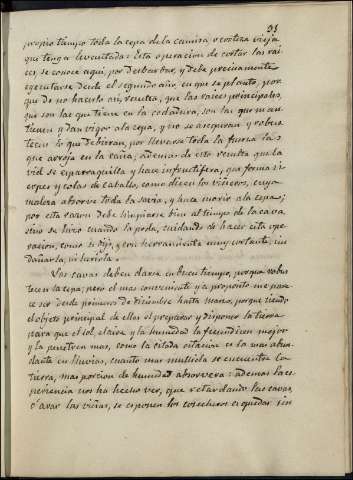 91
propio tiempo toda la cepa de la camisa ò corteza vieja
que tenga levantada: esta operacion de cortar las rai-
ces, se conoce aqui, por desbarbar, y debe precisamente
egecutarse desde el segundo año, en que se planto, por
que de no hacerlo asi, resulta, que las raices principales,
que son las que tienen en la codadura, son las que man-
tienen y dan vigor ala cepa, y no se aseguran y robus-
tecen lo que debieran, por llevarse toda la fuerza las
que arroja en la caña; ademas de esto resulta que la
vid se esparraguilla y hace infrutifera, que forma si-
erpes y colas de caballo, como dicen los viñeros, cuya
madera absorve toda la savia, y hace morir ala cepa;
por esta razon debe limpiarse bien al tiempo de la cava
sino se hizo cuando la poda, cuidando de hacer esta ope-
racion, como se dijo, y con herramienta muy cortante, sin
dañarla, ni herirla.
Las cavas deben darse en buen tiempo, porque robus-
tecen la cepa; pero el mas conveniente y a proposito me pare-
ce ser desde primeros de diciembre hasta marzo, porque siendo
el objeto principal de ellas el preparar y disponer la tierra
para que el sol, el aire y la humedad la fecundicen mejor
y la penetren mas, como la citada estacion es la mas abun-
dante en lluvias, cuanto mas mullida se encuentra la
tierra, mas porcion de humedad absorverá: ademas la es-
periencia nos ha hecho ver, que retardando las cavas,
ó arar las viñas, se esponen los cosecheros a quedar sin